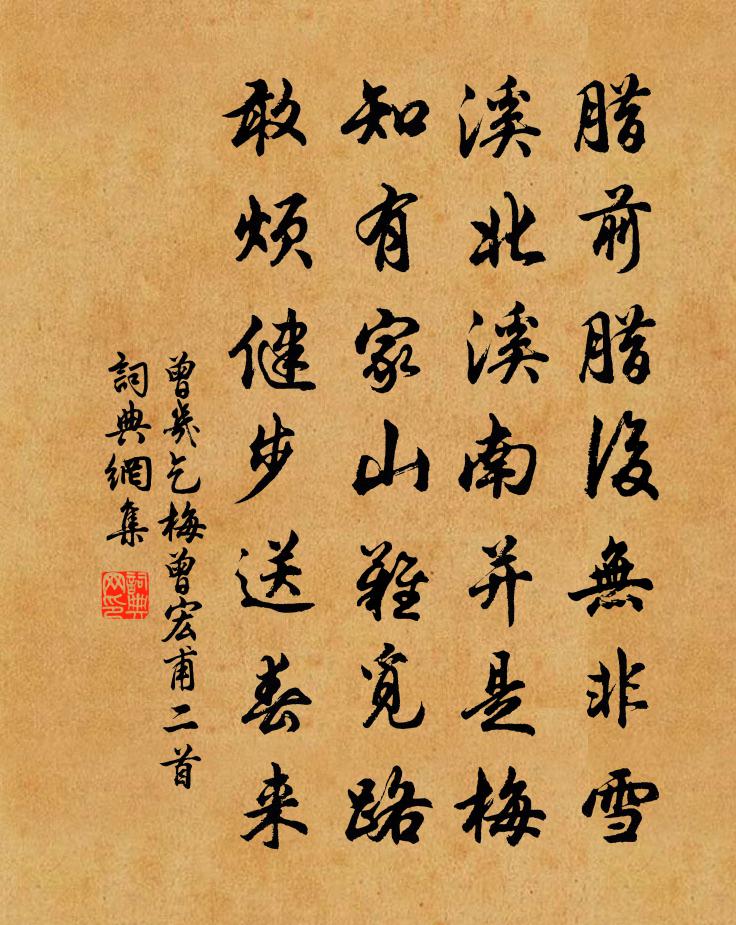 腊前腊後無非雪
溪北溪南并是梅
知有家山難覓路
敢煩健步送春来
曾幾乞梅曾宏甫二首
詞典網集
詞典
网印